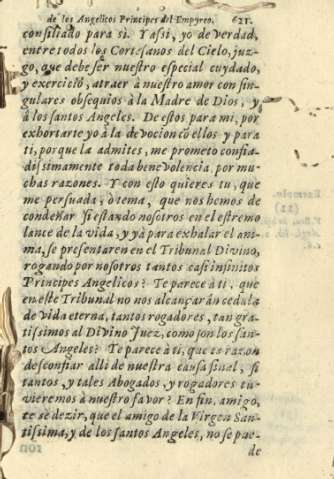 de los Angelicos Principes del Empyreo. 621
consiliado para sì. Y assi, yo de verdad,
entre todos los Cortesanos del Cielo, juz-
go, que debe ser nuestro especial cuydado,
y exercicio, atraer à nuestro amor con sin-
gulares obsequios à la Madre de Dios, y
à los santos Angeles. De estos para mi, por
exhortarte yo à la devocion cō ellos y para
ti, porque la admites, me prometo confia-
dissimamente toda benevolencia, por mu-
chas razones. Y con esto quieres tu, que
me persuada, ò tema, que nos hemos de
condenar si estando nosotros en el estremo
lance de la vida, y yà para exhalar el ani-
ma, se presentaren en el Tribunal Divino,
rogando por nosotros tantos casi infinitos
Principes Angelicos? Te parece à ti, que
en este Tribunal no nos alcançaràn cedula
de vida eterna, tantos rogadores, tan gra-
tissimos al Divino Juez, como son los san-
tos Angeles? Te parece à ti, que es razon
desconfiar alli de nuestra causa final, si
tantos, y tales Abogados, y rogadores tu-
vieremos à nuestro favor? En fin, amigo,
te se dezir, que el amigo de la Virgen San-
tissima, y de los santos Angeles, no se pue-
de